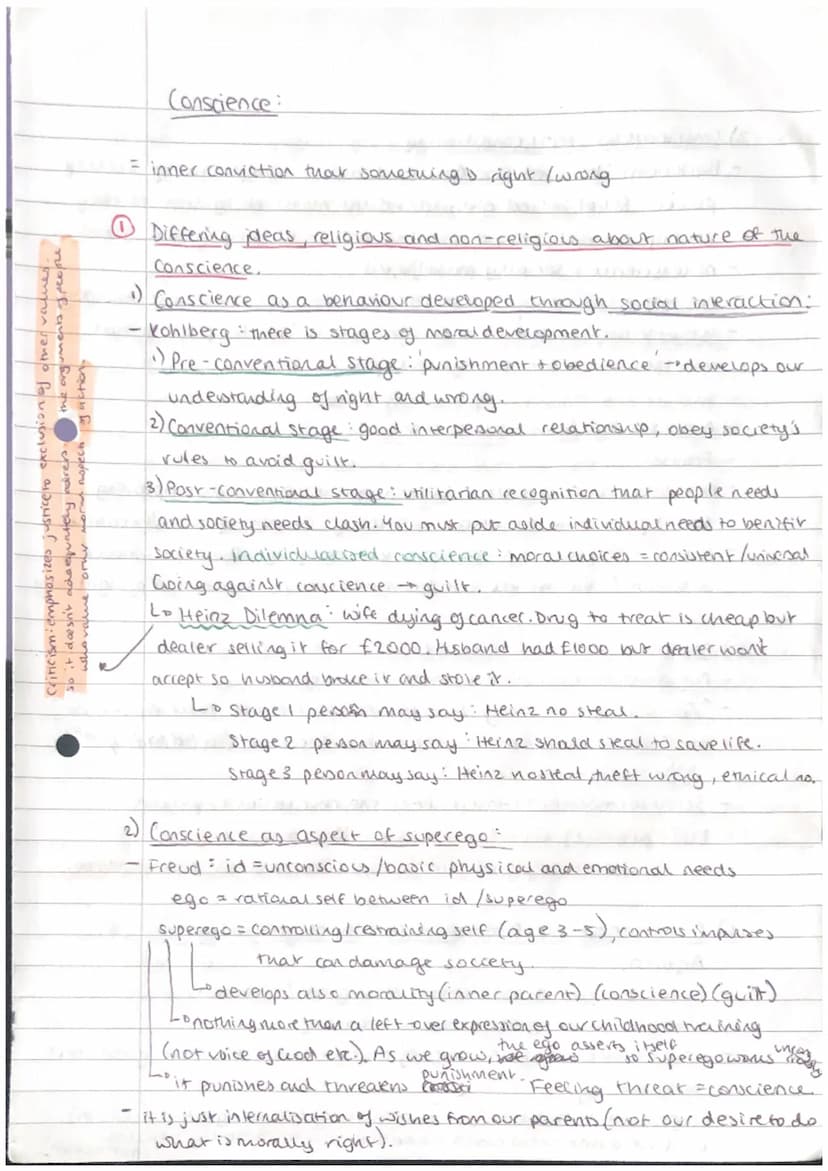 Conscience:
= inner conviction that something's right / wrong
① Differing ideas, religious and non-religious about nature of the
conscience.
1) Conscience as a behaviour developed through social interaction:
- Kohlberg: there is stages of moral development.
1) Pre-conventional stage: 'punishment + obedience' → develops our
understanding of right and wrong.
2) Conventional stage: good interpersonal relationship, obey society's
rules to avoid guilt.
3) Post-conventional stage: utilitarian recognition that people needs
and society needs clash. You must put aside individual needs to benifit
society. Individualised conscience: moral choices = consistent / universal
Going against conscience → guilt.
↳ Heinz Dilemna: wife dying of cancer. Drug to treat is cheap but
dealer selling it for £2000. Husband had £1000 but dealer won't
accept so husband broke in and stole it.
↳ Stage 1 person may say: Heinz no steal.
Stage 2 person may say: Heinz should steal to save life.
Stage 3 person may say: Heinz no steal, theft wrong, ethical no.
Criticism: emphasizes justice to exclusion of other values.
so it doesn't adequately address the arguments of people
who value other moral aspects of action.
2) Conscience as aspect of superego:
- Freud: id = unconscious / basic physical and emotional needs
ego = rational self between id / superego
superego = controlling / restraining self (age 3-5), controls impulses
that can damage society.
↳ develops also morality (inner parent) (conscience) (guilt)
↳ nothing more than a left-over expression of our childhood training
(not voice of God etc.). As we grow, the ego asserts itself so superego works
↳ it punishes and threatens punishment. Feeling threat = conscience
- it is just internalisation of wishes from our parents (not our desire to do
what is morally right).